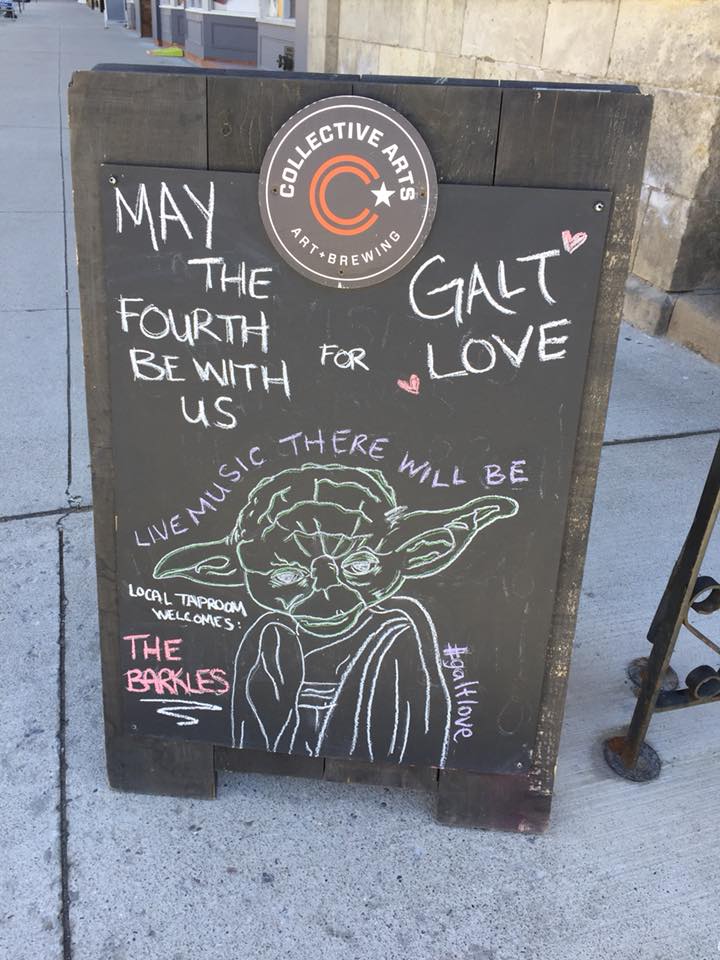 COLLECTIVE ARTS
ART+BREWING
MAY
THE
FOURTH
BE WITH
US
FOR
GALT
LOVE
LIVE MUSIC THERE WILL BE
LOCAL TAPROOM
WELCOMES:
THE
BARKLES
#galtlove